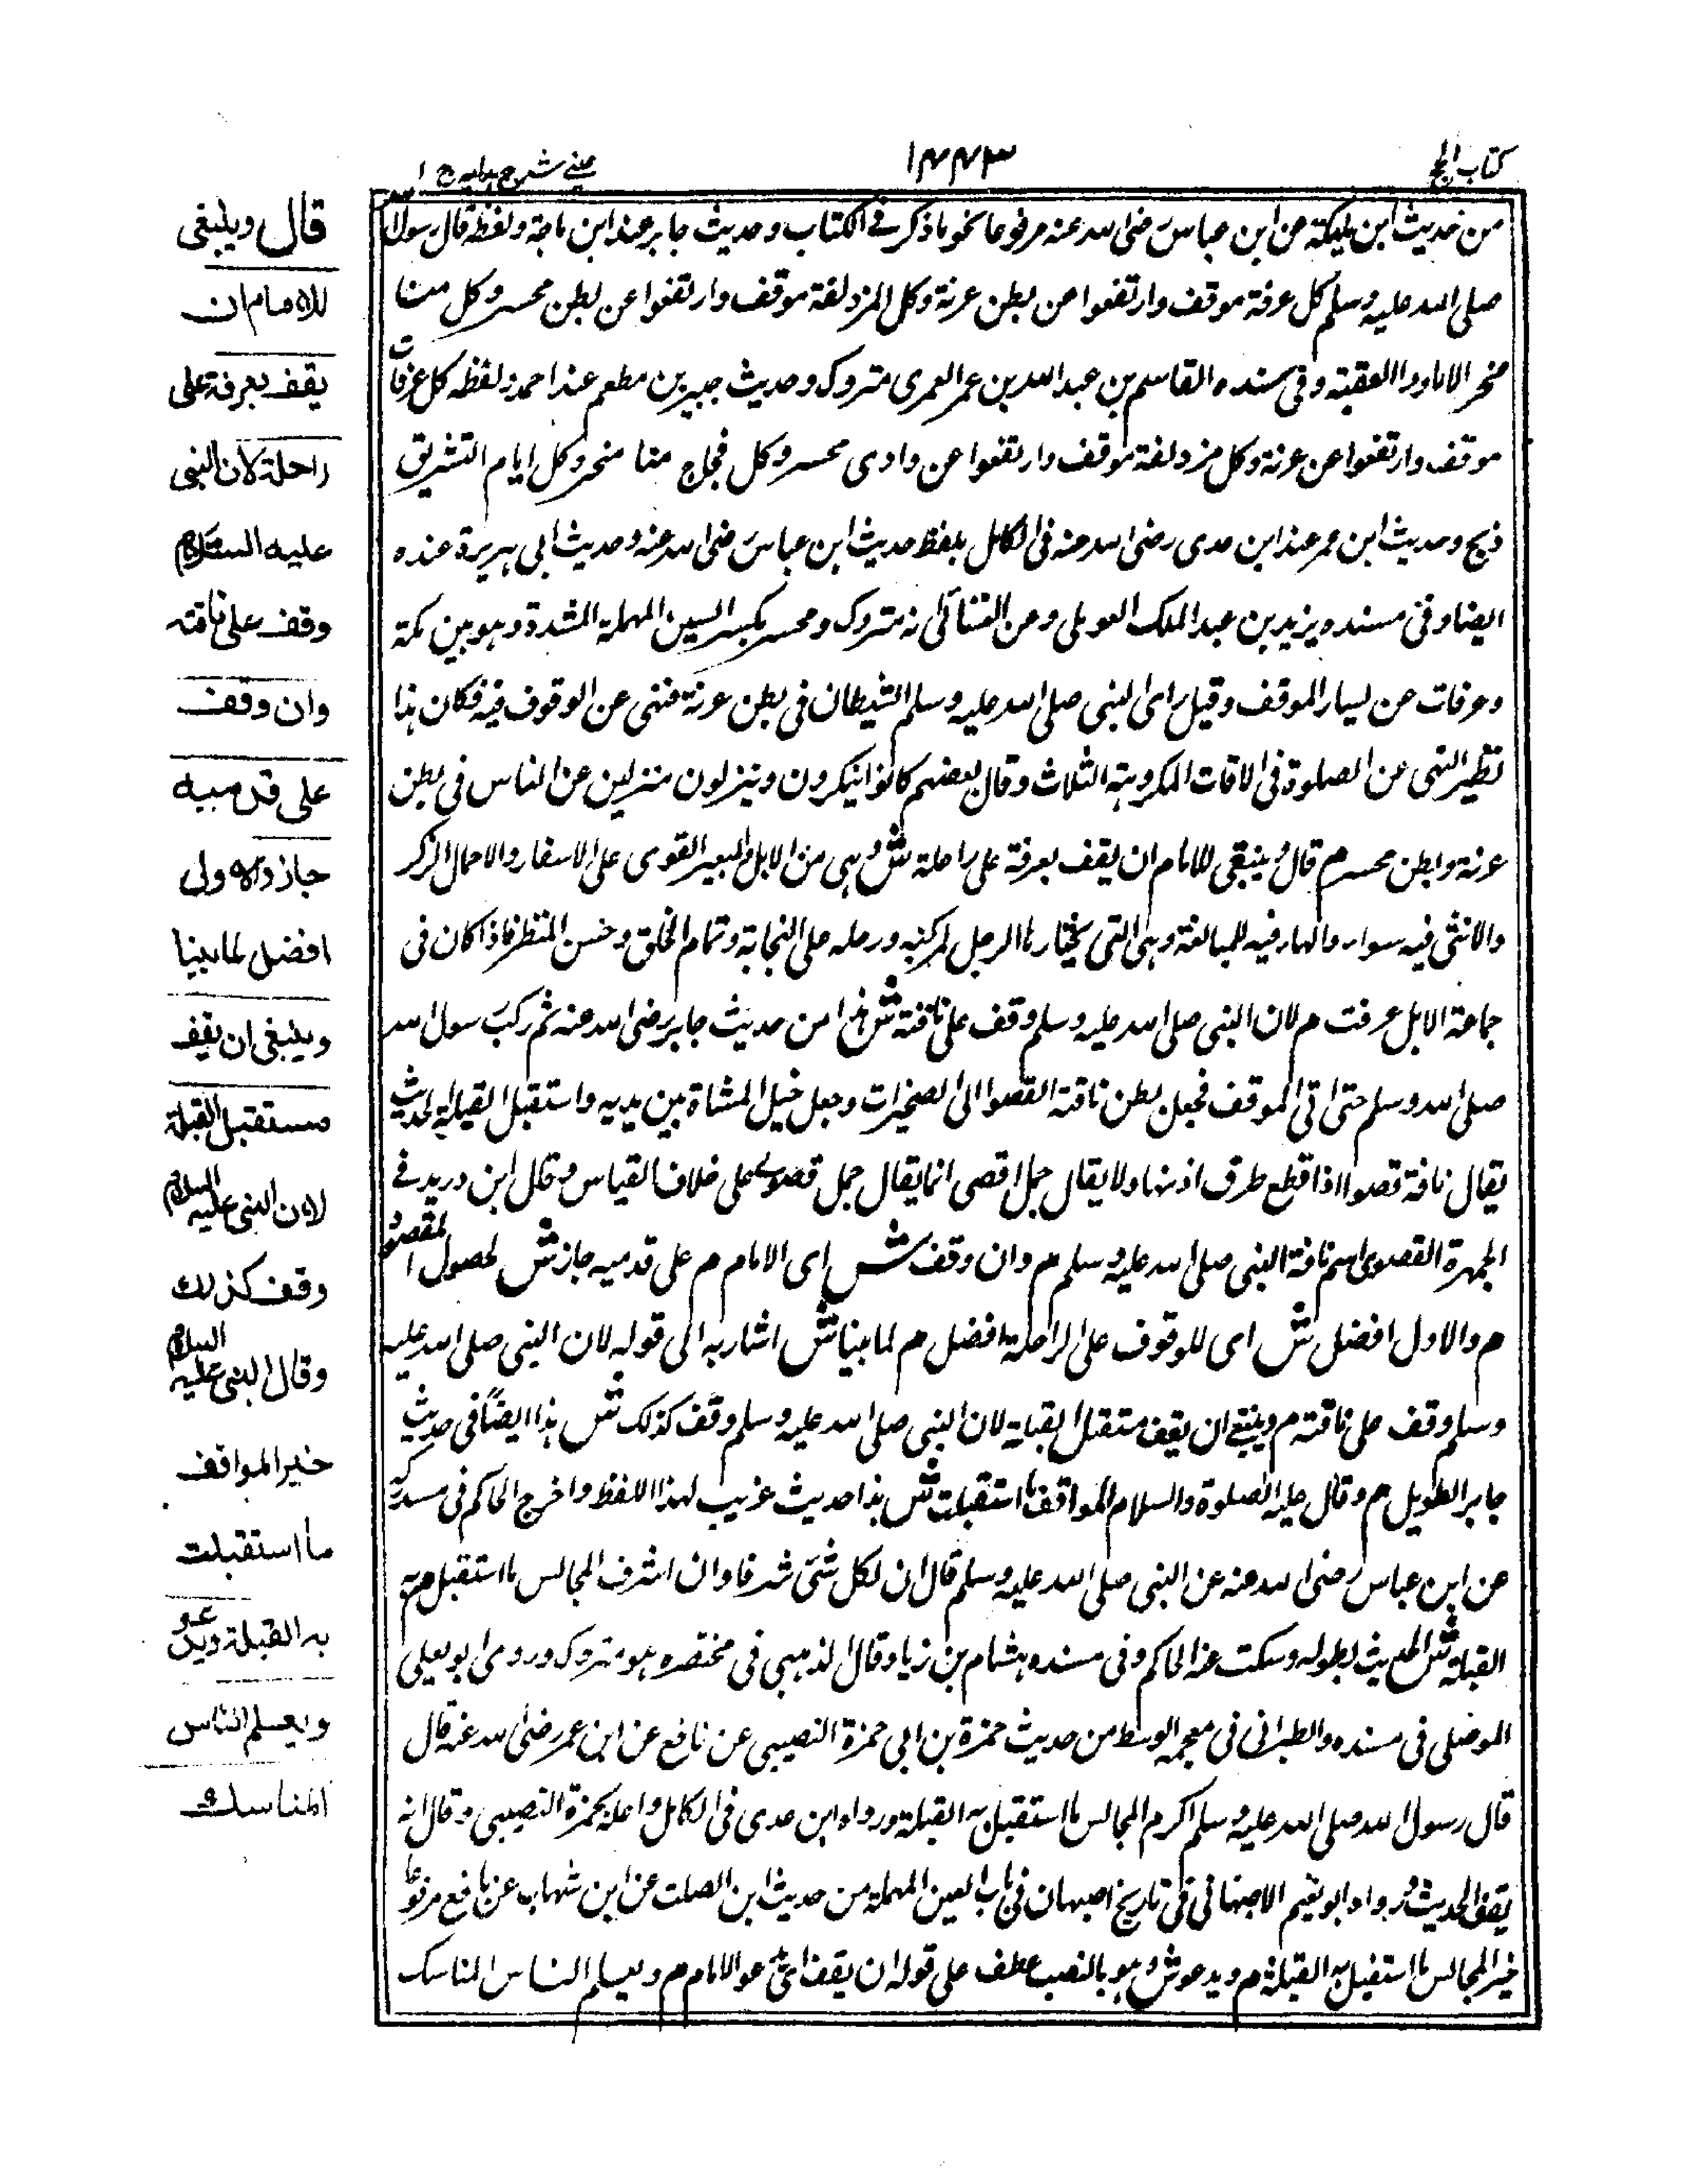 كتاب الحج
١٤٤٣
عيني شرح هدايه ج ١
من حديث ابن مليكة عن ابن عباس رضى الله عنه مرفوعا نحو ما ذكر فى الكتاب وحديث جابر عند ابن ماجة ولفظه قال رسول الله
صلى الله عليه وسلم كل عرفة موقف وارتفعوا عن بطن عرنة وكل المزدلفة موقف وارتفعوا عن بطن محسر وكل منا
منحر الا ما وراء العقبة وفى سنده القاسم بن عبد الله بن عمر العمرى متروك وحديث جبير بن مطعم عند احمد ولفظه كل عرفات
موقف وارتفعوا عن عرنة وكل مزدلفة موقف وارتفعوا عن وادى محسر وكل فجاج منا منحر وكل ايام التشريق
ذبح وحديث ابن عمر عند ابن عدى رضى الله عنه فى الكامل بلفظ حديث ابن عباس رضى الله عنه وحديث ابى هريرة عنده
ايضا وفى مسنده يزيد بن عبد الملك وعن النسائى انه متروك ومحسر بكسر السين المهملة المشددة وهو بين مكة
وعرفات عن يسار الموقف وقيل راى النبى صلى الله عليه وسلم الشيطان فى بطن عرنة فنهى عن الوقوف فيه فكان هذا
نظير النهى عن الصلوة فى الاقات المكروهة الثلاث وقال بعضهم كانوا ينكرون وينزلون منزلين عن الناس فى بطن
عرنة وبطن محسر م قال وينبغى للامام ان يقف بعرفة على راحلة ش وهى من الابل البعير القوى على الاسفار والاحمال الذكر
والانثى فيه سواء والهاء فيه للمبالغة وهى التى يختارها الرجل لمركبه ورحله على النجابة وتمام الخلق وحسن المنظر فاذا كان فى
جماعة الابل عرفت م لان النبى صلى الله عليه وسلم وقف على ناقته ش هذا من حديث جابر رضى الله عنه ثم ركب رسول الله
صلى الله وسلم حتى اتى الموقف فجعل بطن ناقته القصوا الى الصخرات وجعل حبل المشاة بين يديه واستقبل القبلة الحديث
يقال ناقة قصوا اذا قطع طرف اذنها ولا يقال جمل اقصى انما يقال جمل قصوى على خلاف القياس وقال ابن دريد فى
الجمهرة القصوى اسم ناقة النبى صلى الله عليه وسلم م وان وقف ش اى الامام م على قدميه جاز ش لحصول المقصود
م والاول افضل ش اى للوقوف على الراحلة افضل م لما بينا ش اشار به الى قوله لان النبى صلى الله عليه
وسلم وقف على ناقته م وينبغى ان يقف مستقبل القبلة لان النبى صلى الله عليه وسلم وقف كذلك ش هذا ايضا فى حديث
جابر الطويل م وقال عليه الصلوة والسلام المواقف ما استقبلت ش هذا حديث غريب لهذا اللفظ واخرج الحاكم فى مستدركه
عن ابن عباس رضى الله عنه عن النبى صلى الله عليه وسلم قال ان لكل شئ شرفا وان اشرف المجالس ما استقبل م به
القبلة ش الحديث بطوله وسكت عنه الحاكم وفى مسنده هشام بن زياد وقال الذهبى فى مختصره هو متروك وروى ابو يعلى
الموصلى فى مسنده والطبرانى فى معجمه الوسط من حديث حمزة بن ابى حمزة النصيبى عن نافع عن ابن عمر رضى الله عنه قال
قال رسول الله صلى الله عليه وسلم اكرم المجالس ما استقبل به القبلة ورواه ابن عدى فى الكامل واعله بحمزة النصيبى وقال انه
الحديث ورواه ابو نعيم الاصبهانى فى تاريخ اصبهان فى باب العين المهملة من حديث ابن الصلت عن ابن شهاب عن نافع مرفوعا
خير المجالس ما استقبل به القبلة م ويدعو ش وهو بالنصب عطف على قوله ان يقف اى يدعو الامام م ويعلم الناس المناسك
قال وينبغى
للامام ان
يقف بعرفة على
راحلة لان النبى
عليه السلام
وقف على ناقته
وان وقف
على قدميه
جاز والاول
افضل لما بينا
وينبغى ان يقف
مستقبل القبلة
لان النبى عليه السلام
وقف كذلك
وقال النبى عليه السلام
خير المواقف
ما استقبلت
به القبلة ويدعو
ويعلم الناس
المناسك